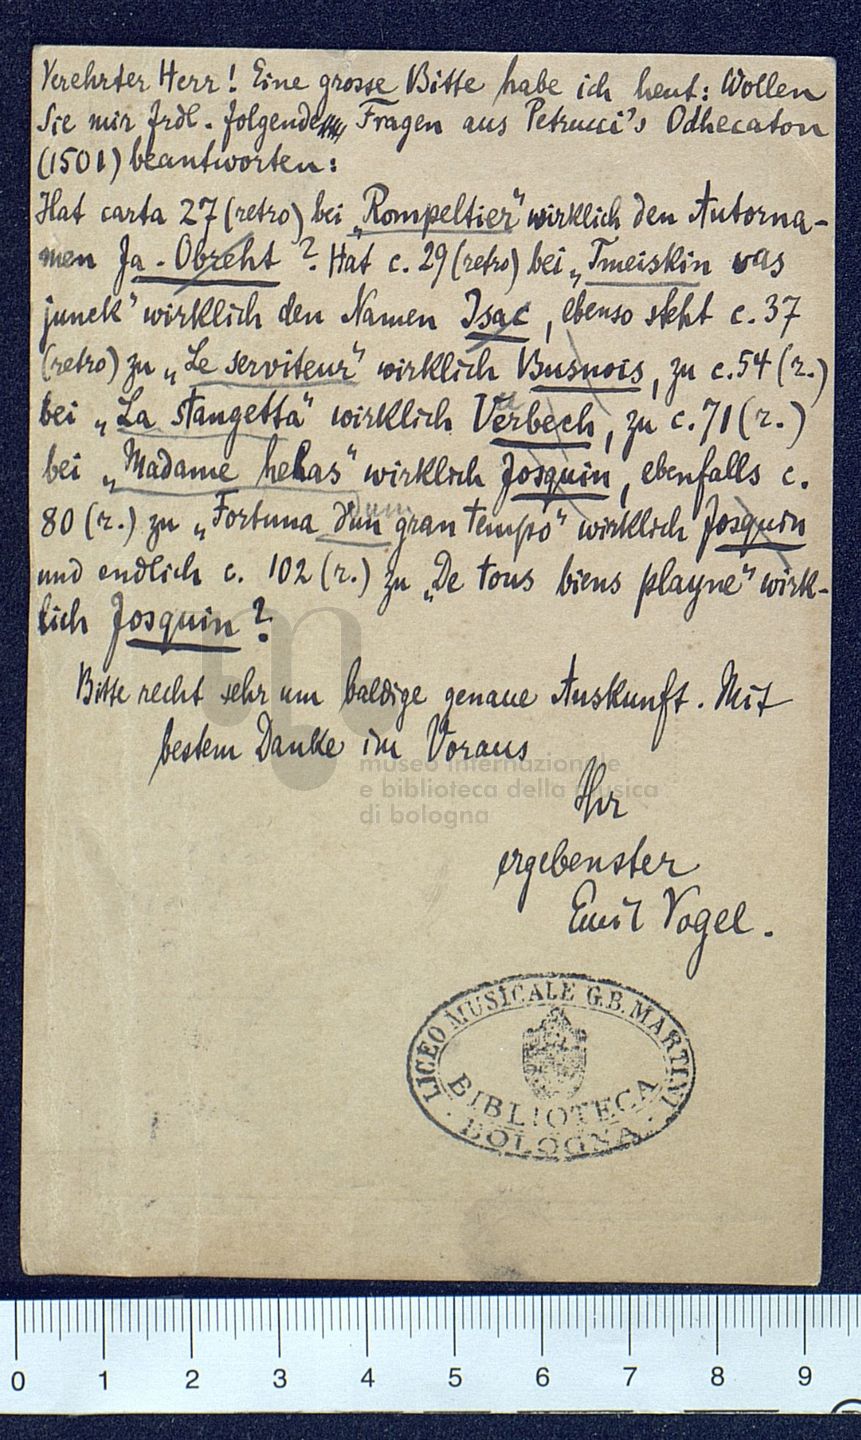 Verehrter Herr! Eine grosse Bitte habe ich heut: Wollen
Sie mir frdl. folgende Fragen aus Petrucci's Odhecaton
(1501) beantworten:
Hat carta 27 (retro) bei „Rompeltier" wirklich den Autorna-
men Ja. Obreht? Hat c. 29 (retro) bei „Tmeiskin was
junck" wirklich den Namen Isac, ebenso steht c. 37
(retro) zu „Le serviteur" wirklich Busnois, zu c. 54 (r.)
bei „La stangetta" wirklich Verbech, zu c. 71 (r.)
bei „Madame helas" wirklich Josquin, ebenfalls c.
80 (r.) zu „Fortuna d'un gran tempo" wirklich Josquin
dum
und endlich c. 102 (r.) zu „De tous biens playne" wirk-
lich Josquin?
Bitte recht sehr um baldige genaue Auskunft. Mit
bestem Danke im Voraus
Ihr
ergebenster
Emil Vogel.
museo internazionale
e biblioteca della musica
di bologna
LICEO MUSICALE G.B. MARTINI
BIBLIOTECA
· BOLOGNA ·
0 1 2 3 4 5 6 7 8 9